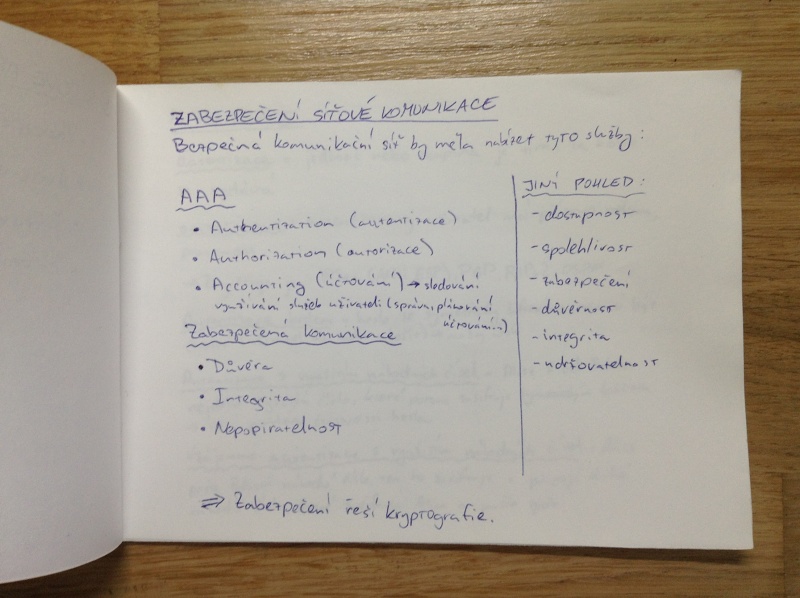 ZABEZPEČENÍ SÍŤOVÉ KOMUNIKACE
Bezpečná komunikační síť by měla nabízet tyto služby:
AAA
• Authentization (autentizace)
• Authorization (autorizace)
• Accounting (účtování) → sledování
využívání služeb uživateli (správa, plánování
účtování)
Zabezpečená komunikace
• Důvěra
• Integrita
• Nepopiratelnost
⇒ Zabezpečení řeší kryptografie.
JINÝ POHLED:
- dostupnost
- spolehlivost
- zabezpečení
- důvěrnost
- integrita
- udržovatelnost